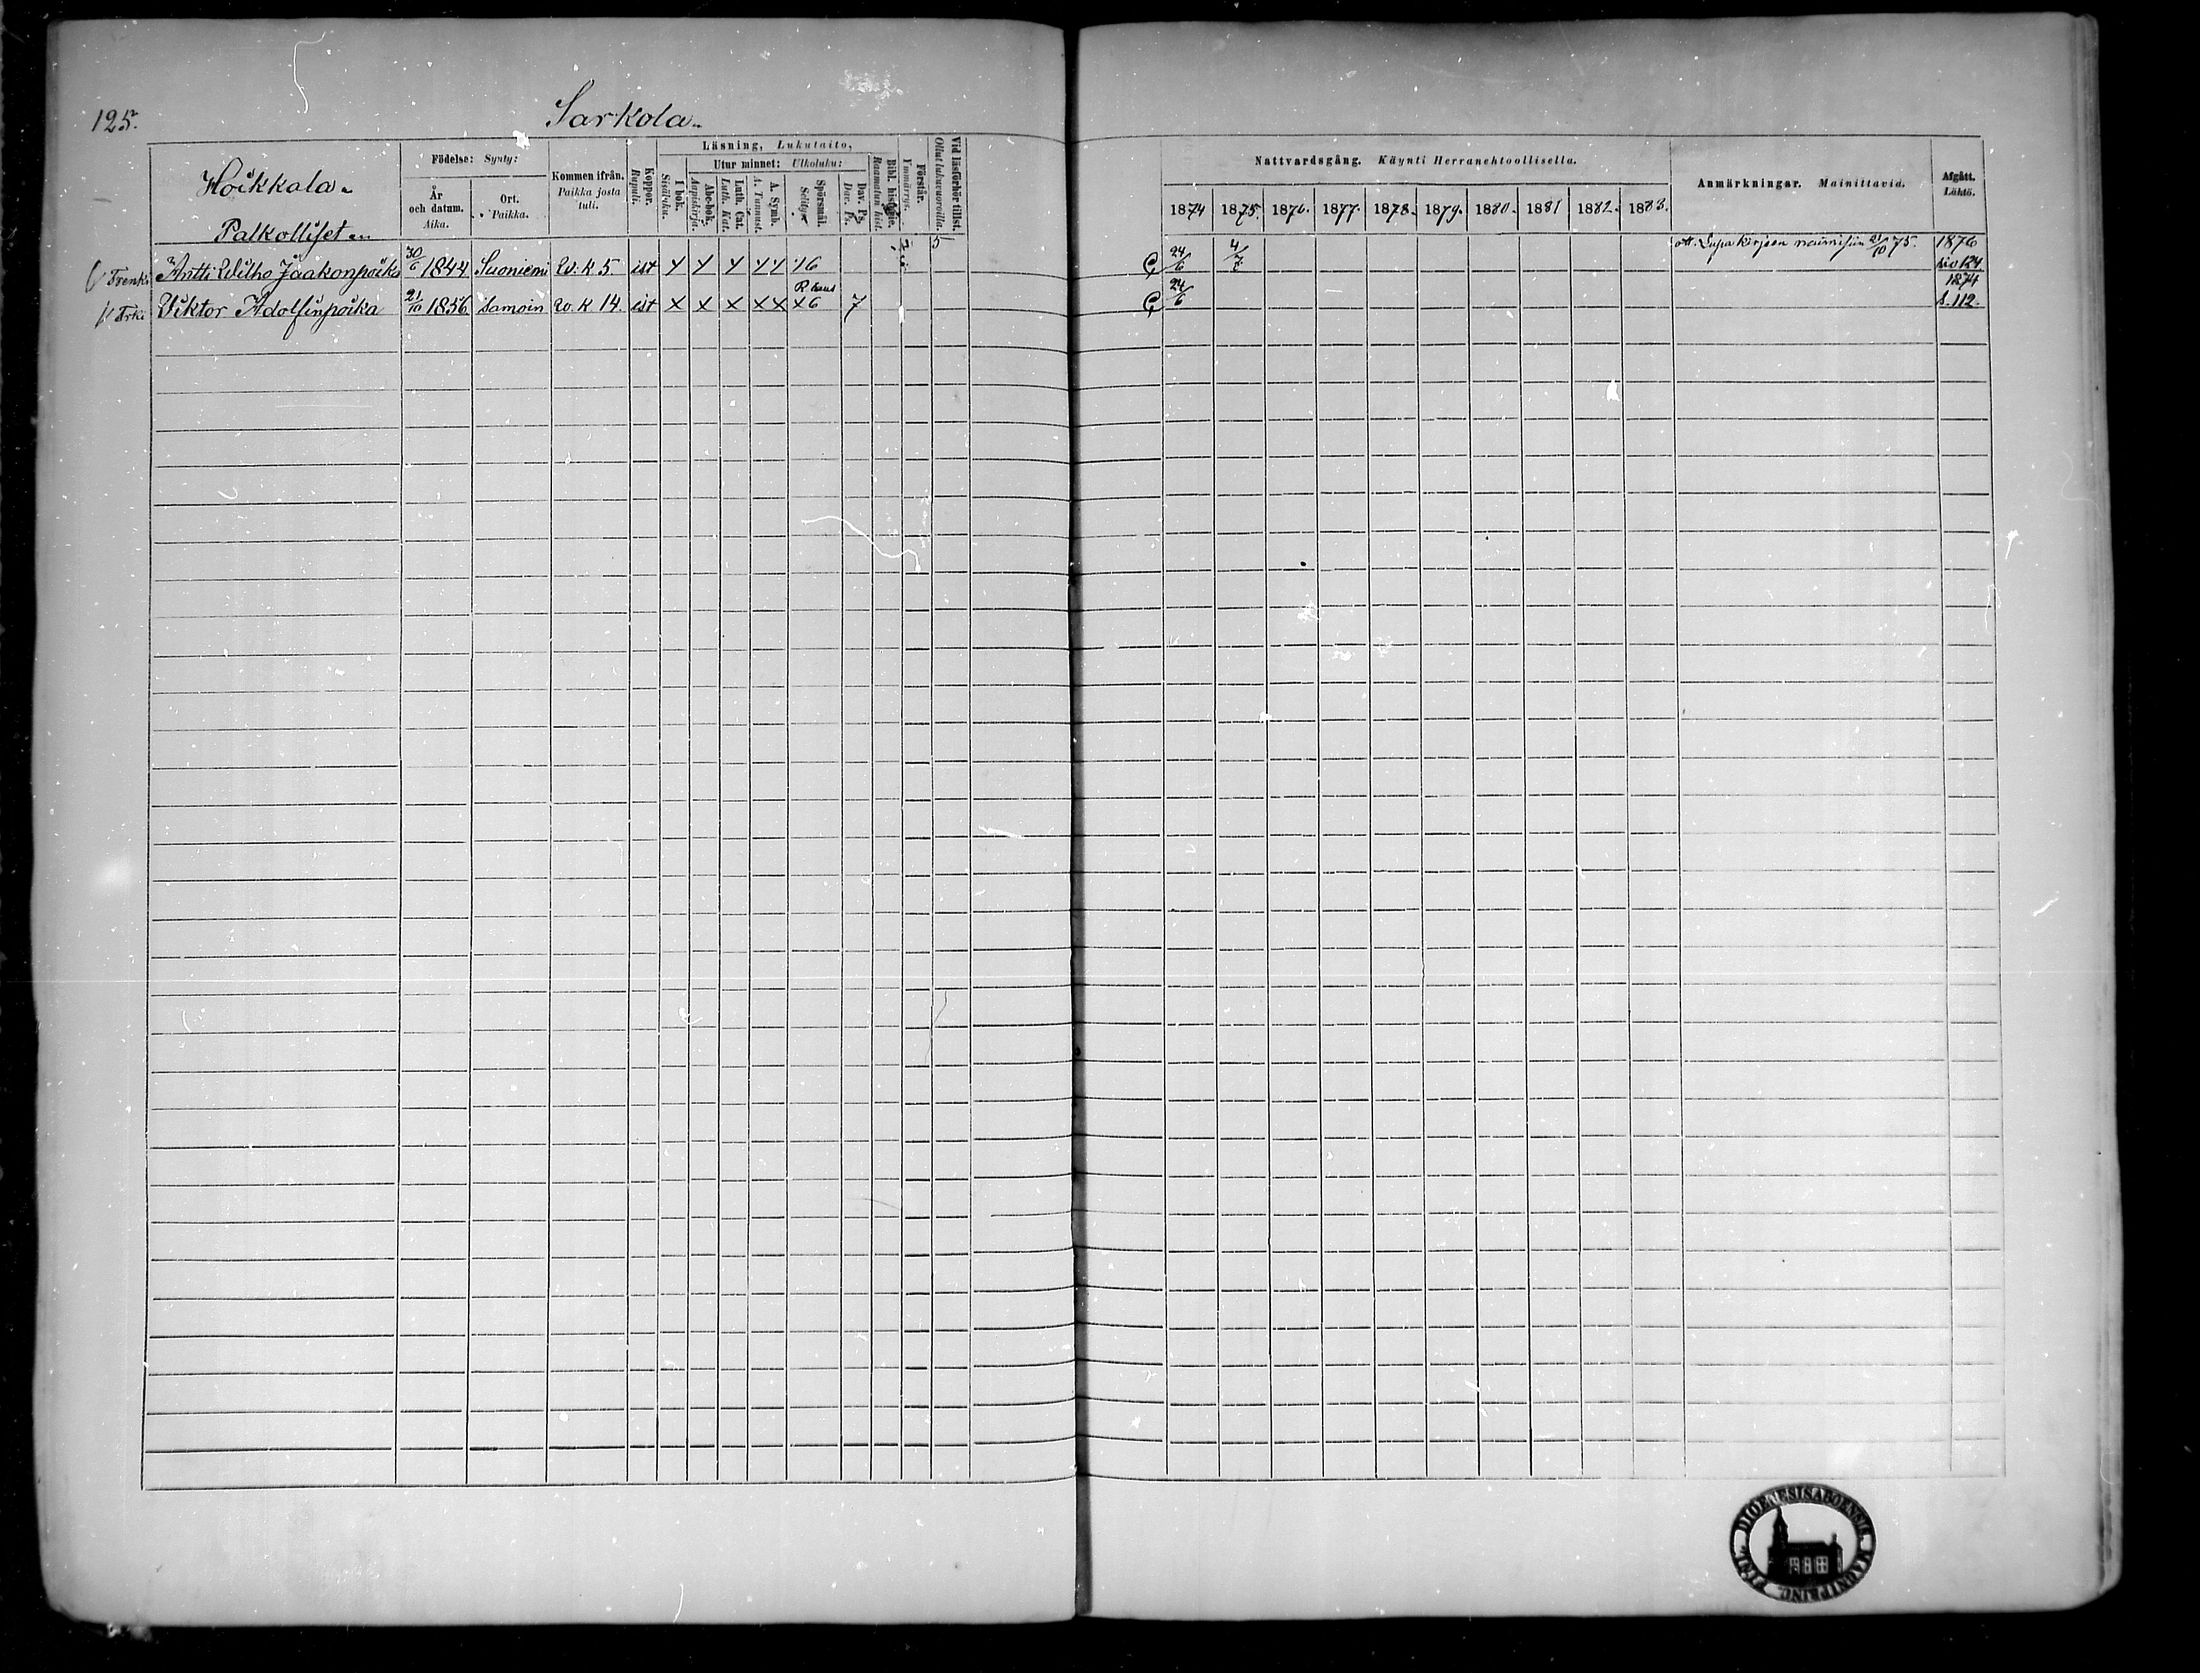 125.
Sarkola.
Hoikkala.
Palkolliset.
Födelse: Synty:
År och datum. Aika.
Ort. Paikka.
Kommen ifrån. Paikka josta tuli.
Koppor. Rupuli.
Läsning, Lukutaito,
I bok. Sisäluku.
Utur minnet: Ulkoluku:
Abc-bok. Aapiskirja.
Luth. Cat. Luth. Kat.
A. Symb. A. Tunnust.
Spörsmål. Selitys.
Dav. Ps. Dav. Ps.
Bibl. historie. Raamatun hist.
Förstår. Ymmärrys.
Vid läsförhör tillst. Ollut lukuvuoroilla.
Nattvardsgång. Käynti Herranehtoollisella.
1874 1875. 1876. 1877. 1878. 1879. 1880. 1881 1882. 1883.
Anmärkningar. Mainittavia.
Afgått. Lähtö.
Trenki Antti Wilho Jaakonpoika 30/6 1844 Suoniemi w. k 5 ist 16 5 24/6 4/7 ott. Lupakirjeen naimisiin 21/10 75. 1876 siv 124
Trki Viktor Adolfinpoika 21/10 1856 samoin w. k 14. ist x x x x x x 6 7 24/6 1874 s. 112.
DIOENESIS ABOENSIS MAGNI PRINC. FINL.